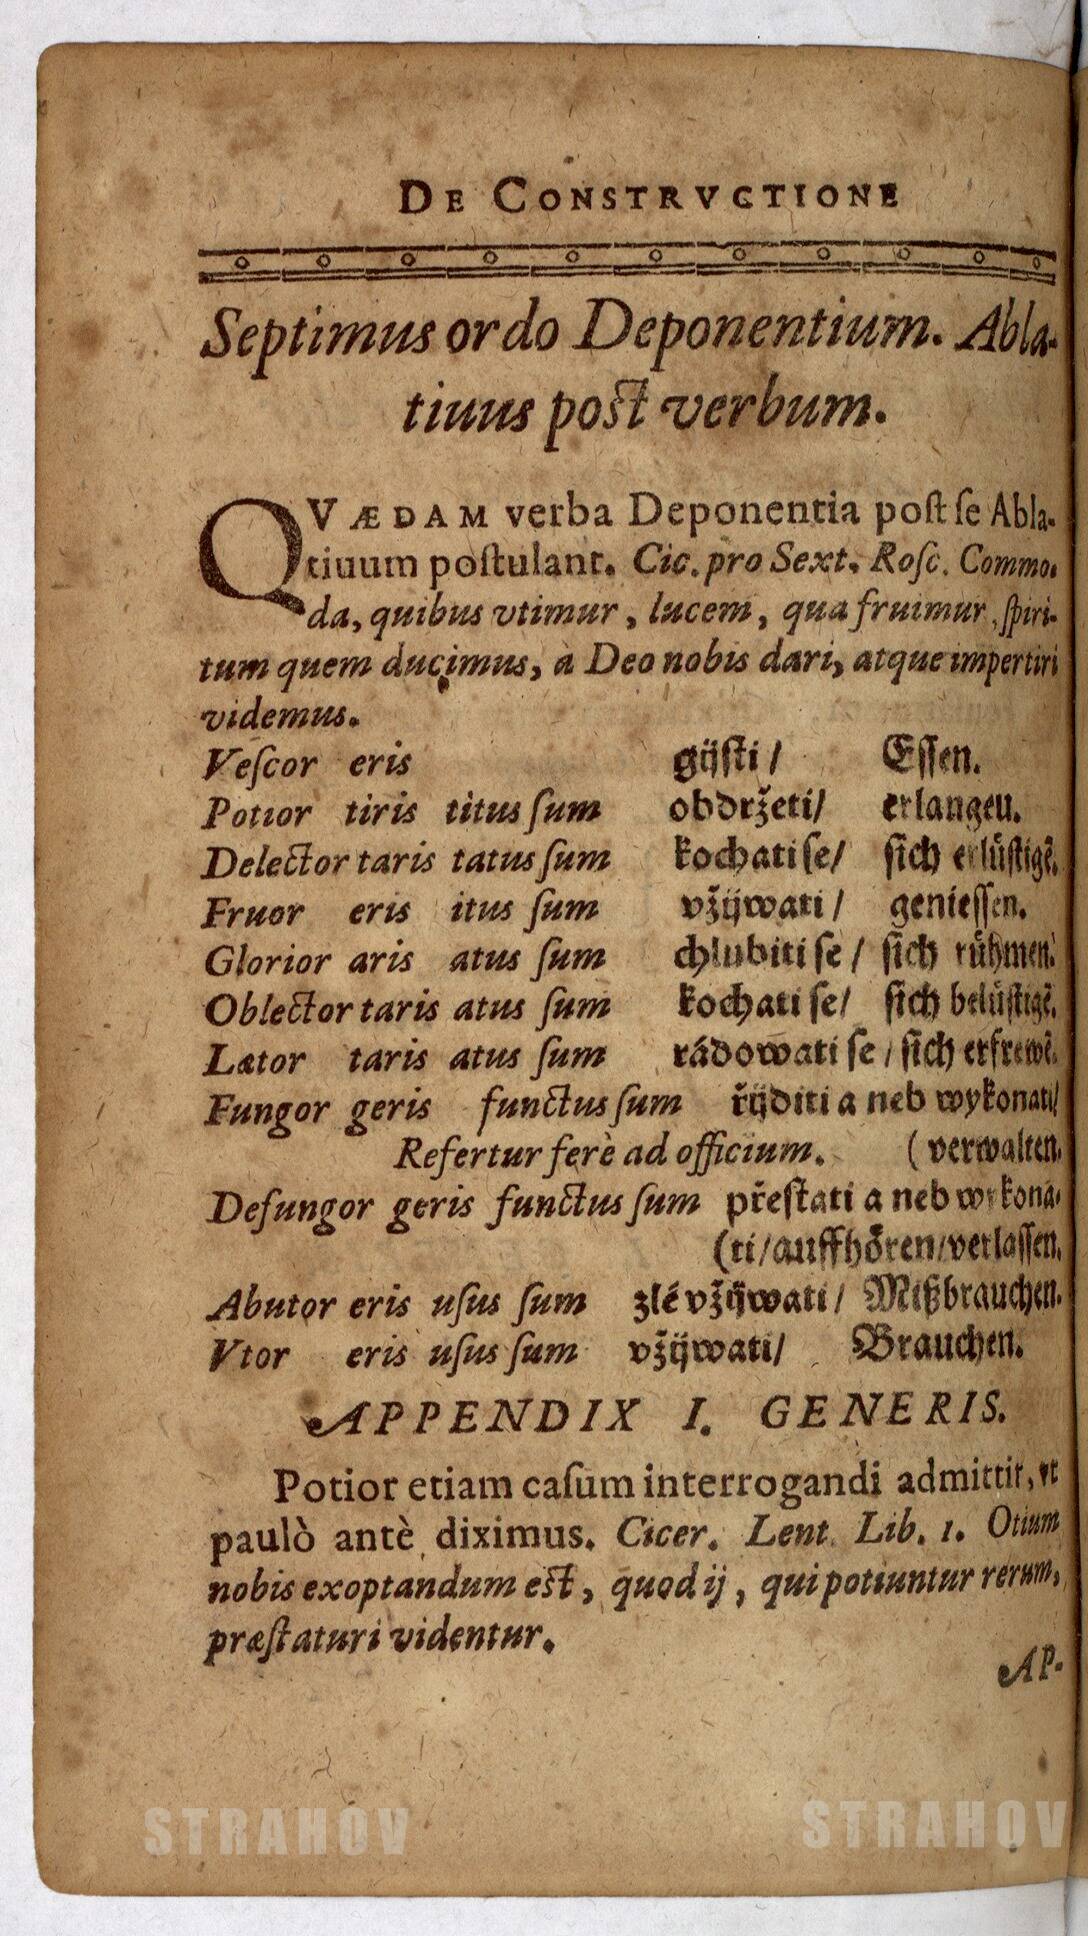 DE CONSTRVCTIONE
Septimus ordo Deponentium. Abla-
tiuus post verbum.
QVÆDAM verba Deponentia poſt ſe Abla-
tiuum poſtulant. Cic. pro Sext. Roſc. Commo-
da, quibus vtimur, lucem, qua fruimur, ſpiri-
tum quem ducimus, à Deo nobis dari, atque impertiri
videmus.
Veſcor eris gijſti / Eſſen.
Potior tiris titus ſum obdržeti/ erlangen.
Delector taris tatus ſum kochati ſe/ ſich erlůſtigē.
Fruor eris itus ſum vžijwati / genieſſen.
Glorior aris atus ſum chlubiti ſe / ſich růhmen.
Oblector taris atus ſum kochati ſe/ ſich belůſtigē.
Lætor taris atus ſum rádowati ſe / ſich erfrewē.
Fungor geris functus ſum řijditi a neb wykonati/
Refertur ferè ad officium. ( verwalten.
Defungor geris functus ſum přeſtati a neb wykona-
(ti/auffhören/verlaſſen.
Abutor eris uſus ſum zlé vžijwati / Mißbrauchen.
Vtor eris uſus ſum vžijwati/ Brauchen.
APPENDIX I. GENERIS.
Potior etiam caſum interrogandi admittit, vt
paulò antè diximus. Cicer. Lent. Lib. 1. Otium
nobis exoptandum eſt, quod ij, qui potiuntur rerum,
præſtaturi videntur.
AP-
STRAHOV STRAHOV